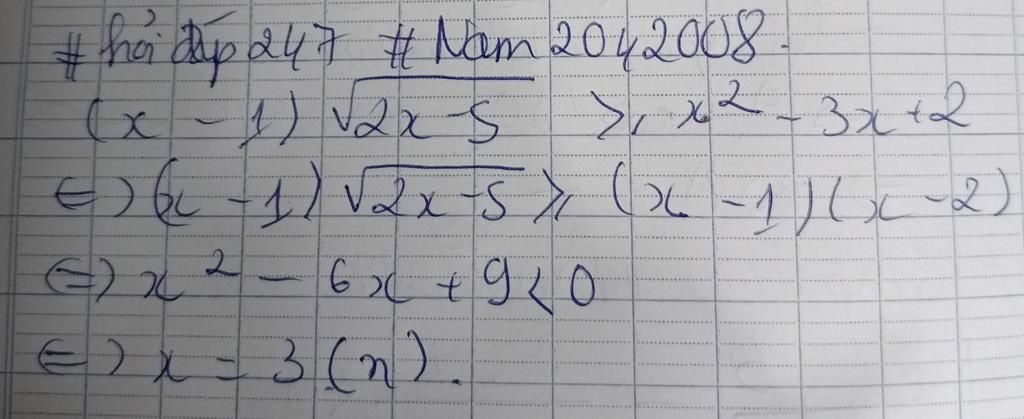 # hỏi đáp 247 # Nam 2042008.
(x - 1) √(2x-5) ≥ x² - 3x + 2
⇔ (x - 1) √(2x-5) ≥ (x - 1)(x - 2)
⇔ x² - 6x + 9 < 0
⇔ x = 3 (n).